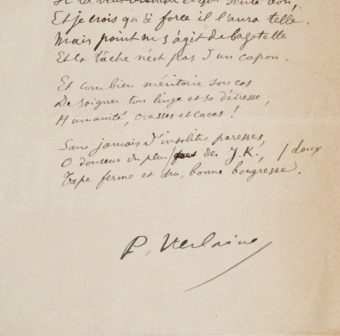 Et je crois qu'à force il l'aura telle.
Mais point ne s'agit de bagatelle
Et la tâche n'est pas d'un capon.
Et combien méritoire son cas
De soigner ton linge et sa détresse,
Humanité, crasses et cacas !
Sans jamais d'insolites paresses,
O douceur du plus des J.K., / doux
Tape ferme et dru, bonne bougresse.
P. Verlaine